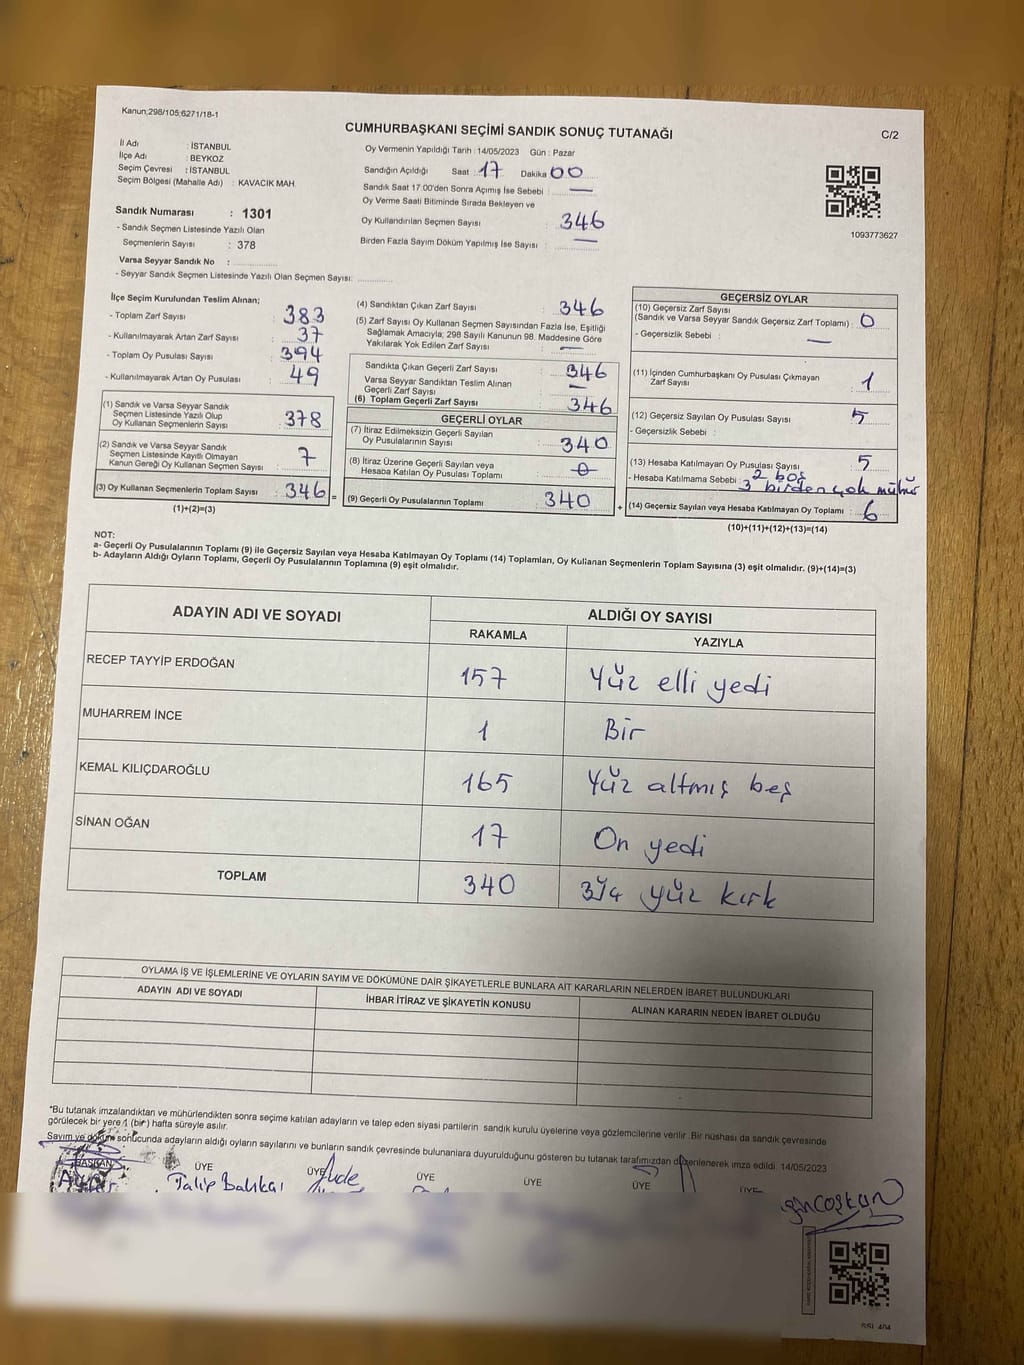 Kanun:298/105;6271/18-1
CUMHURBAŞKANI SEÇİMİ SANDIK SONUÇ TUTANAĞI
C/2
İl Adı : İSTANBUL
İlçe Adı : BEYKOZ
Seçim Çevresi : İSTANBUL
Seçim Bölgesi (Mahalle Adı) : KAVACIK MAH.
Sandık Numarası : 1301
- Sandık Seçmen Listesinde Yazılı Olan
Seçmenlerin Sayısı : 378
Varsa Seyyar Sandık No :
- Seyyar Sandık Seçmen Listesinde Yazılı Olan Seçmen Sayısı:
Oy Vermenin Yapıldığı Tarih : 14/05/2023 Gün : Pazar
Sandığın Açıldığı Saat : 17 Dakika 00
Sandık Saat 17.00'den Sonra Açımış İse Sebebi : —
Oy Verme Saati Bitiminde Sırada Bekleyen ve
Oy Kullandırılan Seçmen Sayısı : 346
Birden Fazla Sayım Döküm Yapılmış İse Sayısı : —
1093773627
İlçe Seçim Kurulundan Teslim Alınan;
- Toplam Zarf Sayısı : 383
- Kullanılmayarak Artan Zarf Sayısı : 37
- Toplam Oy Pusulası Sayısı : 394
- Kullanılmayarak Artan Oy Pusulası : 49
(1) Sandık ve Varsa Seyyar Sandık
Seçmen Listesinde Yazılı Olup
Oy Kullanan Seçmenlerin Sayısı : 378
(2) Sandık ve Varsa Seyyar Sandık
Seçmen Listesinde Kayıtlı Olmayan
Kanun Gereği Oy Kullanan Seçmen Sayısı : 7
(3) Oy Kullanan Seçmenlerin Toplam Sayısı : 346 =
(1)+(2)=(3)
(4) Sandıktan Çıkan Zarf Sayısı : 346
(5) Zarf Sayısı Oy Kullanan Seçmen Sayısından Fazla İse, Eşitliği
Sağlamak Amacıyla; 298 Sayılı Kanunun 98. Maddesine Göre
Yakılarak Yok Edilen Zarf Sayısı : —
Sandıkta Çıkan Geçerli Zarf Sayısı : 346
Varsa Seyyar Sandıktan Teslim Alınan
Geçerli Zarf Sayısı : —
(6) Toplam Geçerli Zarf Sayısı : 346
GEÇERLİ OYLAR
(7) İtiraz Edilmeksizin Geçerli Sayılan
Oy Pusulalarının Sayısı : 340
(8) İtiraz Üzerine Geçerli Sayılan veya
Hesaba Katılan Oy Pusulası Toplamı : 0
(9) Geçerli Oy Pusulalarının Toplamı : 340 +
GEÇERSİZ OYLAR
(10) Geçersiz Zarf Sayısı
(Sandık ve Varsa Seyyar Sandık Geçersiz Zarf Toplamı) : 0
- Geçersizlik Sebebi : —
(11) İçinden Cumhurbaşkanı Oy Pusulası Çıkmayan
Zarf Sayısı : 1
(12) Geçersiz Sayılan Oy Pusulası Sayısı : 5
- Geçersizlik Sebebi :
(13) Hesaba Katılmayan Oy Pusulası Sayısı : 5
- Hesaba Katılmama Sebebi : 2 boş
3 birden çok mühür
(14) Geçersiz Sayılan veya Hesaba Katılmayan Oy Toplamı : 6
(10)+(11)+(12)+(13)=(14)
NOT:
a- Geçerli Oy Pusulalarının Toplamı (9) ile Geçersiz Sayılan veya Hesaba Katılmayan Oy Toplamı (14) Toplamları, Oy Kullanan Seçmenlerin Toplam Sayısına (3) eşit olmalıdır. (9)+(14)=(3)
b- Adayların Aldığı Oyların Toplamı, Geçerli Oy Pusulalarının Toplamına (9) eşit olmalıdır.
ADAYIN ADI VE SOYADI ALDIĞI OY SAYISI
RAKAMLA YAZIYLA
RECEP TAYYİP ERDOĞAN 157 Yüz elli yedi
MUHARREM İNCE 1 Bir
KEMAL KILIÇDAROĞLU 165 Yüz altmış beş
SİNAN OĞAN 17 On yedi
TOPLAM 340 yüz kırk
OYLAMA İŞ VE İŞLEMLERİNE VE OYLARIN SAYIM VE DÖKÜMÜNE DAİR ŞİKAYETLERLE BUNLARA AİT KARARLARIN NELERDEN İBARET BULUNDUKLARI
ADAYIN ADI VE SOYADI İHBAR İTİRAZ VE ŞİKAYETİN KONUSU ALINAN KARARIN NEDEN İBARET OLDUĞU
*Bu tutanak imzalandıktan ve mühürlendikten sonra seçime katılan adayların ve talep eden siyasi partilerin sandık kurulu üyelerine veya gözlemcilerine verilir. Bir nüshası da sandık çevresinde
görülecek bir yere 1 (bir) hafta süreyle asılır.
Sayım ve döküm sonucunda adayların aldığı oyların sayılarını ve bunların sandık çevresinde bulunanlara duyurulduğunu gösteren bu tutanak tarafımızdan düzenlenerek imza edildi. 14/05/2023
BAŞKAN ÜYE ÜYE ÜYE ÜYE ÜYE ÜYE
Talip Balıkçı